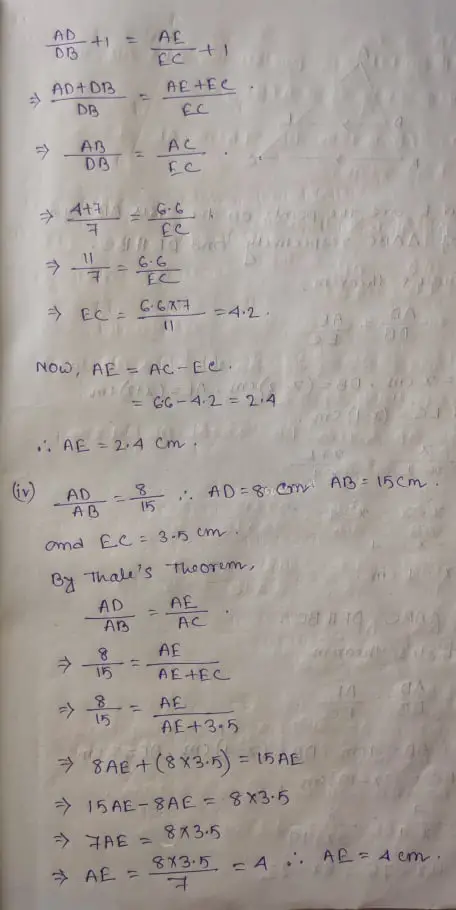 AD/DB + 1 = AE/EC + 1
⇒ AD+DB/DB = AE+EC/EC .
⇒ AB/DB = AC/EC .
⇒ 4+7/7 = 6.6/EC
⇒ 11/7 = 6.6/EC
⇒ EC = 6.6×7/11 = 4.2 .
NOW, AE = AC - EC .
= 6.6 - 4.2 = 2.4
∴ AE = 2.4 cm .
(iv) AD/AB = 8/15 ∴ AD = 8 cm AB = 15 cm .
and EC = 3.5 cm .
By Thale's Theorem,
AD/AB = AE/AC .
⇒ 8/15 = AE/AE+EC
⇒ 8/15 = AE/AE+3.5
⇒ 8AE + (8×3.5) = 15AE
⇒ 15AE - 8AE = 8×3.5
⇒ 7AE = 8×3.5
⇒ AE = 8×3.5/7 = 4 ∴ AE = 4 cm .